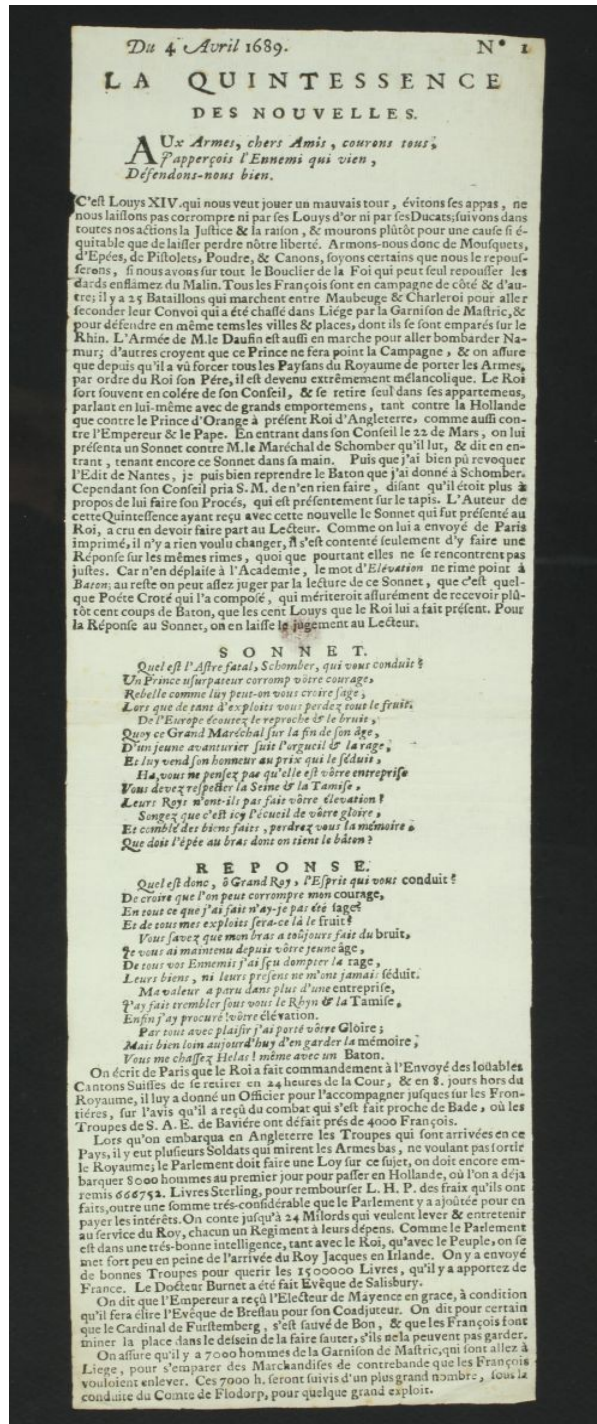 Du 4 Avril 1689. N° 1
LA QUINTESSENCE
DES NOUVELLES.
AUx Armes, chers Amis, courons tous,
J'apperçois l'Ennemi qui vien,
Défendons-nous bien.
C'est Louys XIV. qui nous veut jouer un mauvais tour, évitons ses appas, ne
nous laissons pas corrompre ni par ses Louys d'or ni par ses Ducats; suivons dans
toutes nos actions la Justice & la raison, & mourons plûtôt pour une cause si é-
quitable que de laisser perdre nôtre liberté. Armons-nous donc de Mousquets,
d'Epées, de Pistolets, Poudre, & Canons, soyons certains que nous le repous-
serons, si nous avons sur tout le Bouclier de la Foi qui peut seul repousser les
dards enflâmez du Malin. Tous les François sont en campagne de côté & d'au-
tre; il y a 25 Bataillons qui marchent entre Maubeuge & Charleroi pour aller
seconder leur Convoi qui a été chassé dans Liége par la Garnison de Mastric, &
pour défendre en même tems les villes & places, dont ils se sont emparés sur le
Rhin. L'Armée de M. le Daufin est aussi en marche pour aller bombarder Na-
mur; d'autres croyent que ce Prince ne fera point la Campagne, & on assure
que depuis qu'il a vû forcer tous les Paysans du Royaume de porter les Armes,
par ordre du Roi son Pére, il est devenu extrêmement mélancolique. Le Roi
sort souvent en colére de son Conseil, & se retire seul dans ses appartemens,
parlant en lui-même avec de grands emportemens, tant contre la Hollande
que contre le Prince d'Orange à présent Roi d'Angleterre, comme aussi con-
tre l'Empereur & le Pape. En entrant dans son Conseil le 22 de Mars, on lui
présenta un Sonnet contre M. le Maréchal de Schomber qu'il lut, & dit en en-
trant, tenant encore ce Sonnet dans sa main. Puis que j'ai bien pû revoquer
l'Edit de Nantes, je puis bien reprendre le Baton que j'ai donné à Schomber.
Cependant son Conseil pria S. M. de n'en rien faire, disant qu'il étoit plus à
propos de lui faire son Procés, qui est présentement sur le tapis. L'Auteur de
cette Quintessence ayant reçu avec cette nouvelle le Sonnet qui fut présenté au
Roi, a cru en devoir faire part au Lecteur. Comme on lui a envoyé de Paris
imprimé, il n'y a rien voulu changer, il s'est contenté seulement d'y faire une
Réponse sur les mêmes rimes, quoi que pourtant elles ne se rencontrent pas
justes. Car n'en déplaise à l'Academie, le mot d'Elévation ne rime point à
Baton; au reste on peut assez juger par la lecture de ce Sonnet, que c'est quel-
que Poéte Croté qui l'a composé, qui mériteroit assurément de recevoir plû-
tôt cent coups de Baton, que les cent Louys que le Roi lui a fait présent. Pour
la Réponse au Sonnet, on en laisse le jugement au Lecteur.
SONNET.
Quel est l'Astre fatal, Schomber, qui vous conduit?
Un Prince usurpateur corromp vôtre courage,
Rebelle comme luy peut-on vous croire sage,
Lors que de tant d'exploits vous perdez tout le fruit.
De l'Europe écoutez le reproche & le bruit,
Quoy ce Grand Maréchal sur la fin de son âge,
D'un jeune avanturier suit l'orgueil & la rage,
Et luy vend son honneur au prix qui le séduit,
Ha, vous ne pensez pas qu'elle est vôtre entreprise
Vous devez respecter la Seine & la Tamise,
Leurs Roys n'ont-ils pas fait vôtre élevation?
Songez que c'est icy l'écueil de vôtre gloire,
Et comblé des biens faits, perdrez vous la mémoire,
Que doit l'épée au bras dont on tient le bâton?
REPONSE.
Quel est donc, ô Grand Roy, l'Esprit qui vous conduit?
De croire que l'on peut corrompre mon courage,
En tout ce que j'ai fait n'ay-je pas été sage?
Et de tous mes exploits sera-ce là le fruit?
Vous savez que mon bras a toûjours fait du bruit,
Je vous ai maintenu depuis vôtre jeune âge,
De tous vos Ennemis j'ai sçu dompter la rage,
Leurs biens, ni leurs presens ne m'ont jamais séduit.
Ma valeur a paru dans plus d'une entreprise,
J'ay fait trembler sous vous le Rhyn & la Tamise,
Enfin j'ay procuré vôtre élévation.
Par tout avec plaisir j'ai porté vôtre Gloire;
Mais bien loin aujourd'huy d'en garder la mémoire,
Vous me chassez Helas! même avec un Baton.
On écrit de Paris que le Roi a fait commandement à l'Envoyé des loüables
Cantons Suisses de se retirer en 24 heures de la Cour, & en 8. jours hors du
Royaume, il luy a donné un Officier pour l'accompagner jusques sur les Fron-
tiéres, sur l'avis qu'il a reçû du combat qui s'est fait proche de Bade, où les
Troupes de S. A. E. de Baviére ont défait prés de 4000 François.
Lors qu'on embarqua en Angleterre les Troupes qui sont arrivées en ce
Pays, il y eut plusieurs Soldats qui mirent les Armes bas, ne voulant pas sortir
le Royaume; le Parlement doit faire une Loy sur ce sujet, on doit encore em-
barquer 8000 hommes au premier jour pour passer en Hollande, où l'on a déja
remis 666752. Livres Sterling, pour rembourser L. H. P. des fraix qu'ils ont
faits, outre une somme trés-considérable que le Parlement y a ajoûtée pour en
payer les intérêts. On conte jusqu'à 24 Milords qui veulent lever & entretenir
au service du Roy, chacun un Regiment à leurs dépens. Comme le Parlement
est dans une trés-bonne intelligence, tant avec le Roi, qu'avec le Peuple, on se
met fort peu en peine de l'arrivée du Roy Jacques en Irlande. On y a envoyé
de bonnes Troupes pour querir les 1500000 Livres, qu'il y a apportez de
France. Le Docteur Burnet a été fait Evêque de Salisbury.
On dit que l'Empereur a reçû l'Electeur de Mayence en grace, à condition
qu'il fera élire l'Evêque de Breslau pour son Coadjuteur. On dit pour certain
que le Cardinal de Furstemberg, s'est sauvé de Bon, & que les François font
miner la place dans le dessein de la faire sauter, s'ils ne la peuvent pas garder.
On assure qu'il y a 7000 hommes de la Garnison de Mastric, qui sont allez à
Liege, pour s'emparer des Marchandises de contrebande que les François
vouloient enlever. Ces 7000 h. seront suivis d'un plus grand nombre, sous la
conduite du Comte de Flodorp, pour quelque grand exploit.